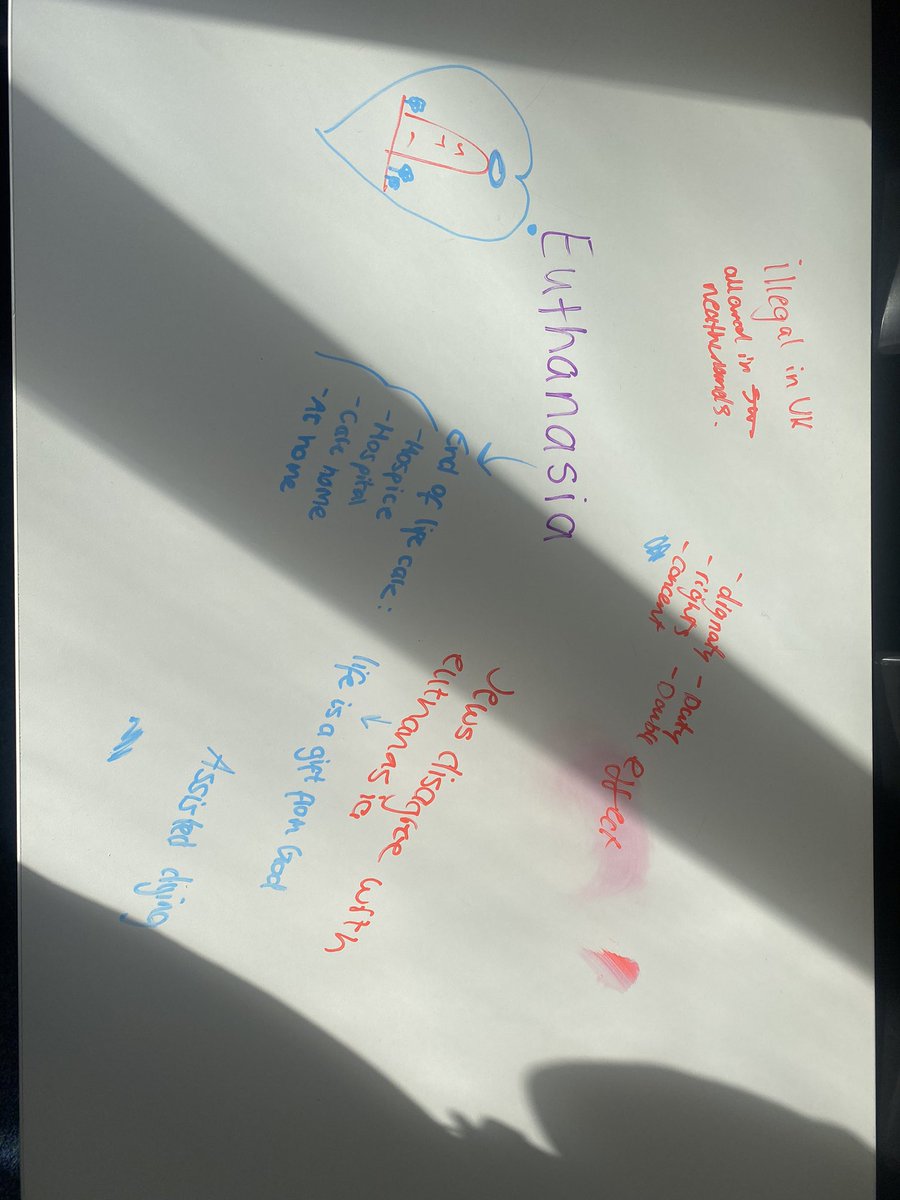 illegal in UK
allowed in
neatherlands.
Euthanasia
- dignaty
- rights
- concent
- Duty
- Double effect
End of life care:
- Hospice
- Hospital
- Care home
- At home
Jews disagree with
euthanasia
life is a gift from God
Assisted dying